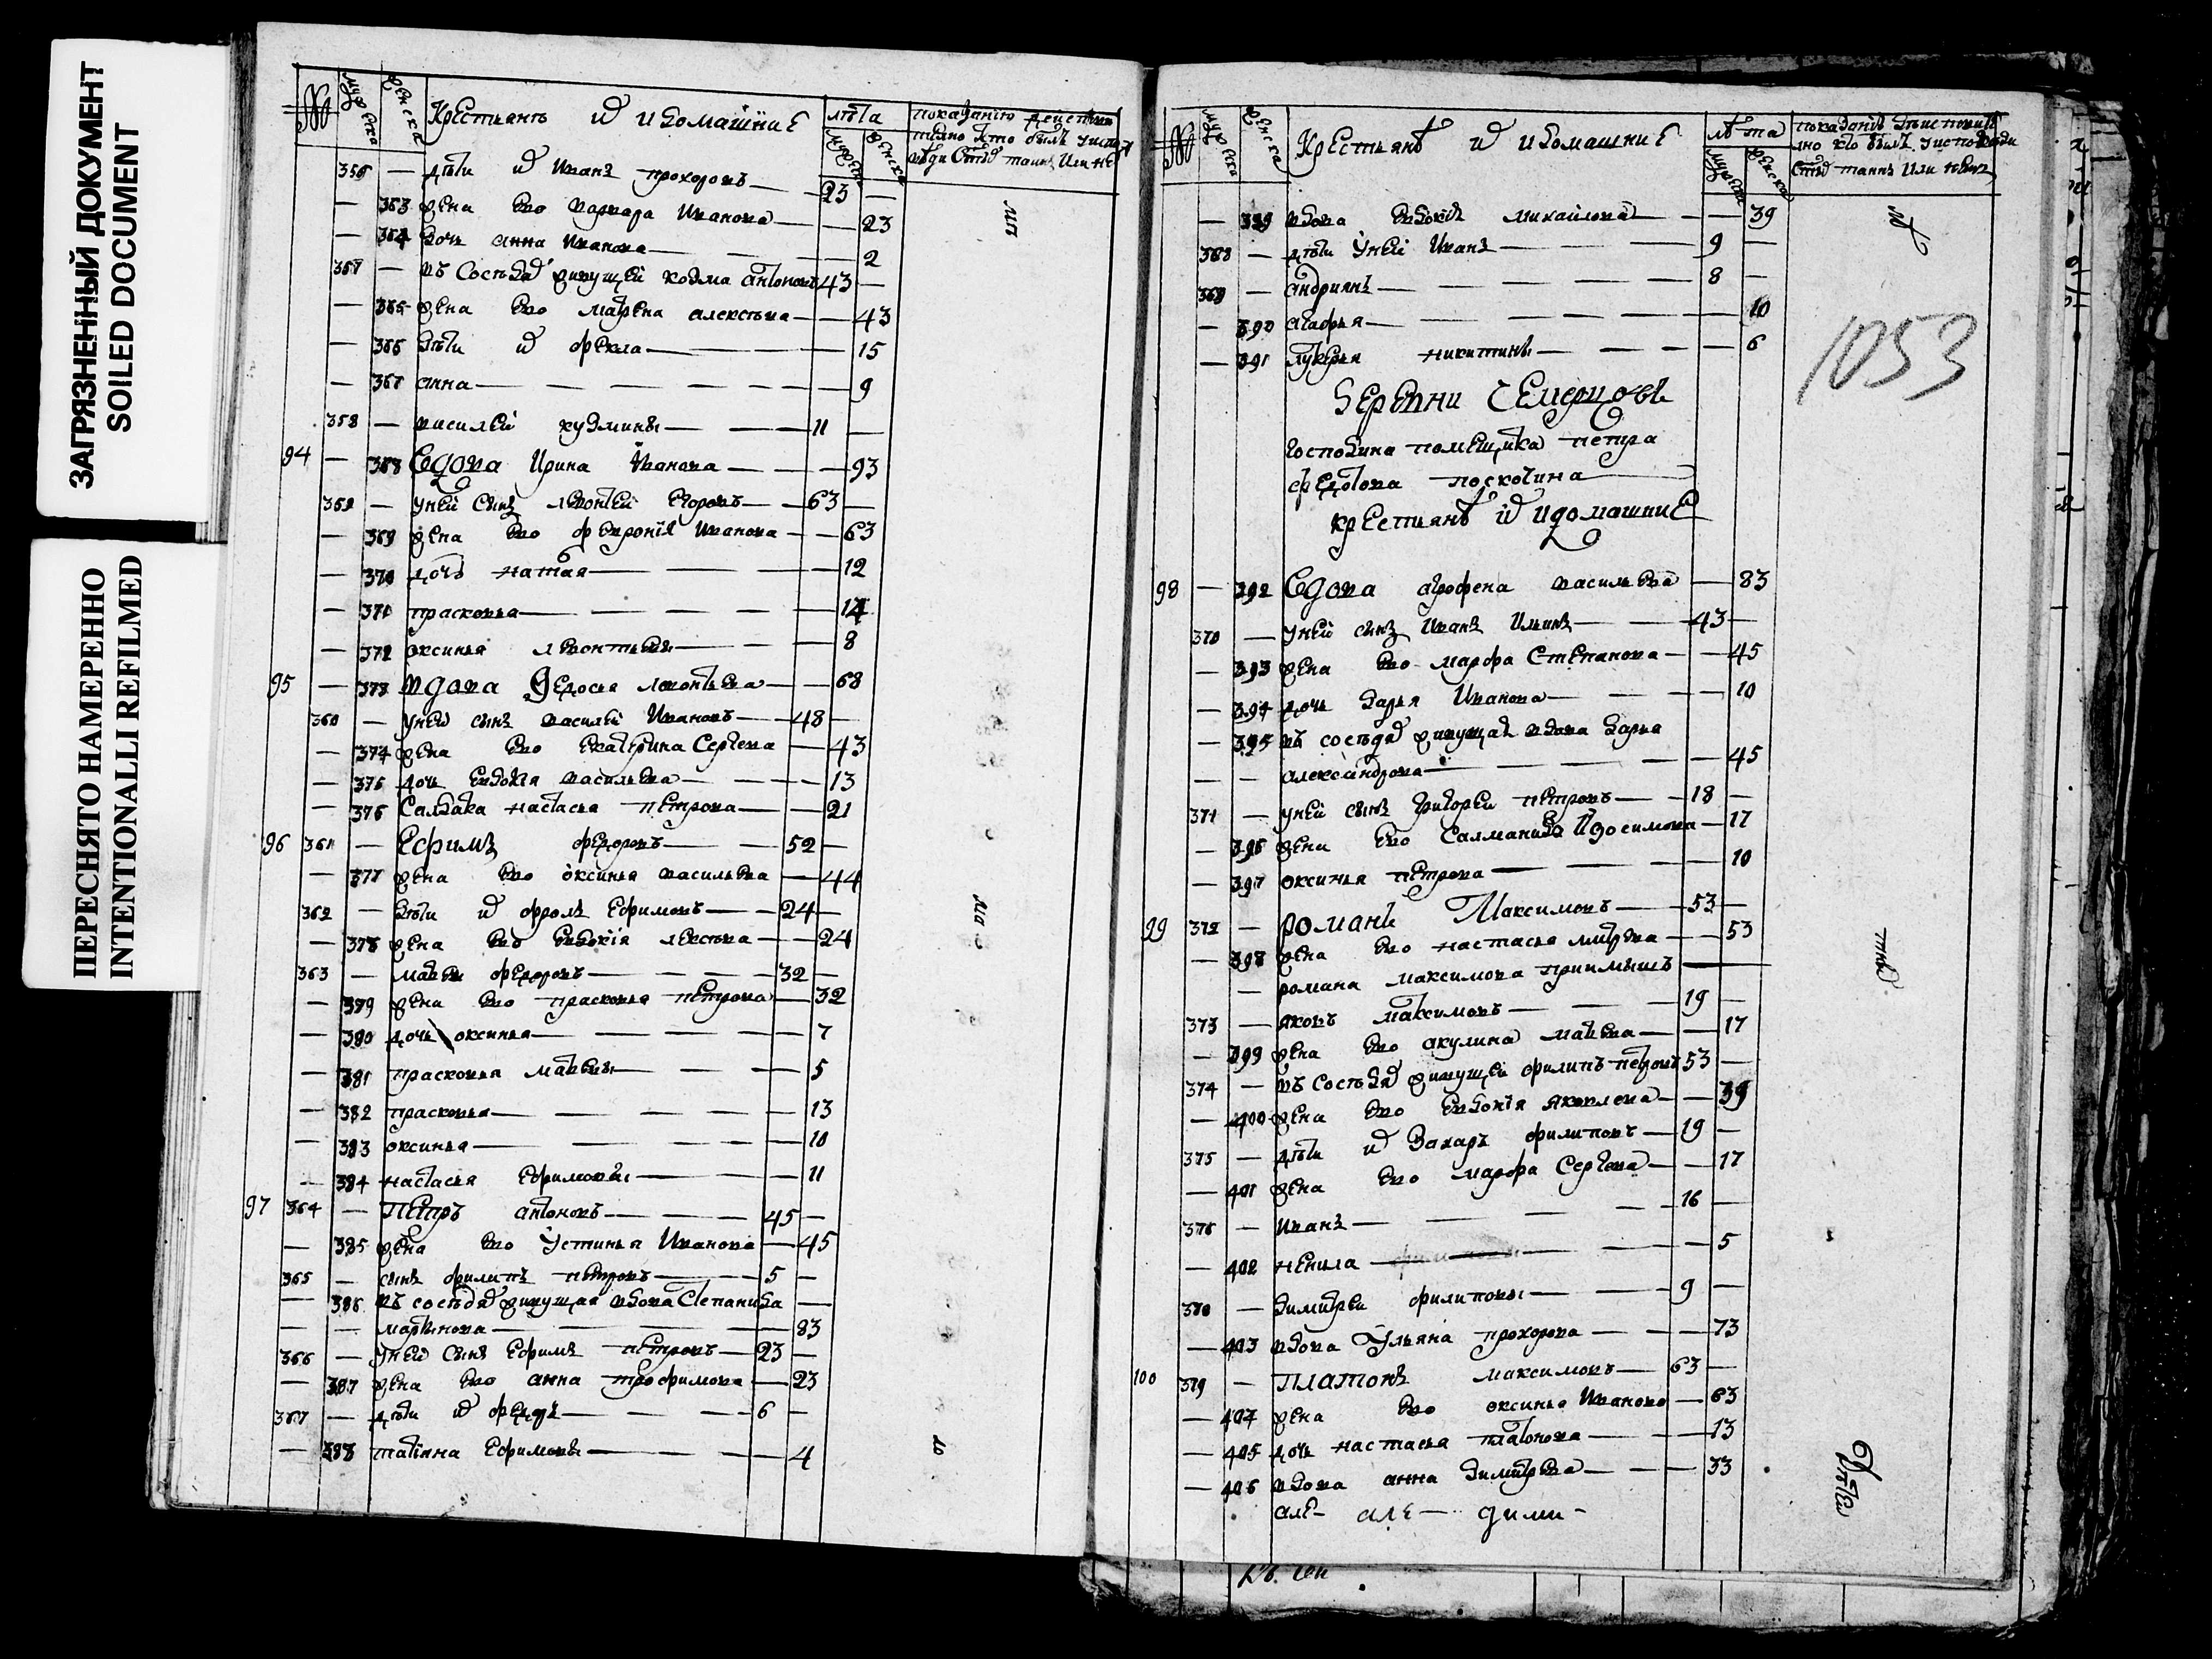 ЗАГРЯЗНЕННЫЙ ДОКУМЕНТ
SOILED DOCUMENT
ПЕРЕСНЯТО НАМЕРЕННО
INTENTIONALLI REFILMED
№ мужеска женска Крестьянъ их и домашние лѣта
мужеска женска
356 — дѣти их Иванъ прохоровъ — 23 —
— 363 жена ево варвара Иванова — — 23
— 364 дочь анна Иванова — — 2
357 — въ Соседях живущей козма антоновъ 43 —
— 365 жена ево матрена алексѣева — — 43
— 366 дѣти их фекла — — 15
— 367 анна — — 9
358 — василей кузмины — 11 —
94 — 368 Вдова Ирина Иванова — — 93
359 — у ней сынъ левонтей Егоровъ — 63 —
— 369 жена ево феврония Иванова — — 63
— 370 дочь наталя — — 12
— 371 прасковья — — 14
— 372 оксинья левонтьевы — — 8
95 — 373 вдова Федосья леонтьева — — 68
360 — у ней сынъ василей Ивановъ — 48 —
— 374 жена ево екатерина Сергеева — — 43
— 375 дочь евдокия васильева — — 13
— 376 Салдатка настасья петрова — — 21
96 361 — Ефимъ федоровъ — 52 —
— 377 жена ево оксинья васильева — — 44
362 — дѣти их фролъ Ефимовъ — 24 —
— 378 жена ево евдокия алексѣева — — 24
363 — матвей федоровъ — 32 —
— 379 жена ево прасковья петрова — — 32
— 380 дочь оксинья — — 7
— 381 прасковья матвевы — — 5
— 382 прасковья — — 13
— 383 оксинья — — 10
— 384 настасья Ефимовы — — 11
97 364 — Петръ антоновъ — 45 —
— 385 жена ево Устинья Иванова — — 45
365 — сынъ филипъ петровъ — 5 —
— 386 въ соседях живущая вдова Степанида —
— — мартинова — — 83
366 — у ней сынъ Ефимъ петровъ — 23 —
— 387 жена ево анна трофимова — — 23
367 — дѣти их федоръ — 6 —
— 388 татияна Ефимовы — — 4
№ мужеска женска Крестьянъ их и домашние лѣта
мужеска женска
— 389 вдова евдокия михайлова — — 39
368 — дѣти у ней Иванъ — 9 —
369 — андриянъ — 8 —
— 390 агафья — — 10
— 391 лукерья никитины — — 6
1053
Деревни
господина помещика петра
федотова
крестьянѣ их и домашние
98 — 392 Вдова агрофена васильева — 83
370 — у ней сынъ Иванъ Ильинъ — 43 —
— 393 жена ево марфа Степанова — — 45
— 394 дочь дарья Иванова — — 10
— 395 въ соседях живущая вдова дарья
— — александрова — — 45
371 — у ней сынъ григорей петровъ — 18 —
— 396 жена ево Саламанида Изосимова — 17
— 397 оксинья петрова — — 10
99 372 — романъ Максимовъ — 53 —
— 398 жена ево настасья — — 53
— романа максимова приимышъ —
373 — яковъ максимовъ — 19 —
— 399 жена ево акулина матвева — — 17
374 — въ Соседях живущей филипъ петровъ 53 —
— 400 жена ево евдокия яковлева — — 39
375 — дѣти их Захаръ филиповъ — 19 —
— 401 жена ево марфа Сергеева — — 17
376 — Иванъ — 16 —
— 402 ненила — — 5
— димитрей филиповы — 9 —
— 403 вдова Ульяна прохорова — — 73
100 379 — Платонъ максимовъ — 63 —
— 404 жена ево оксинья Иванова — 63
— 405 дочь настасья платонова — — 13
— 406 вдова анна димитрева — — 33
але- але- дими-